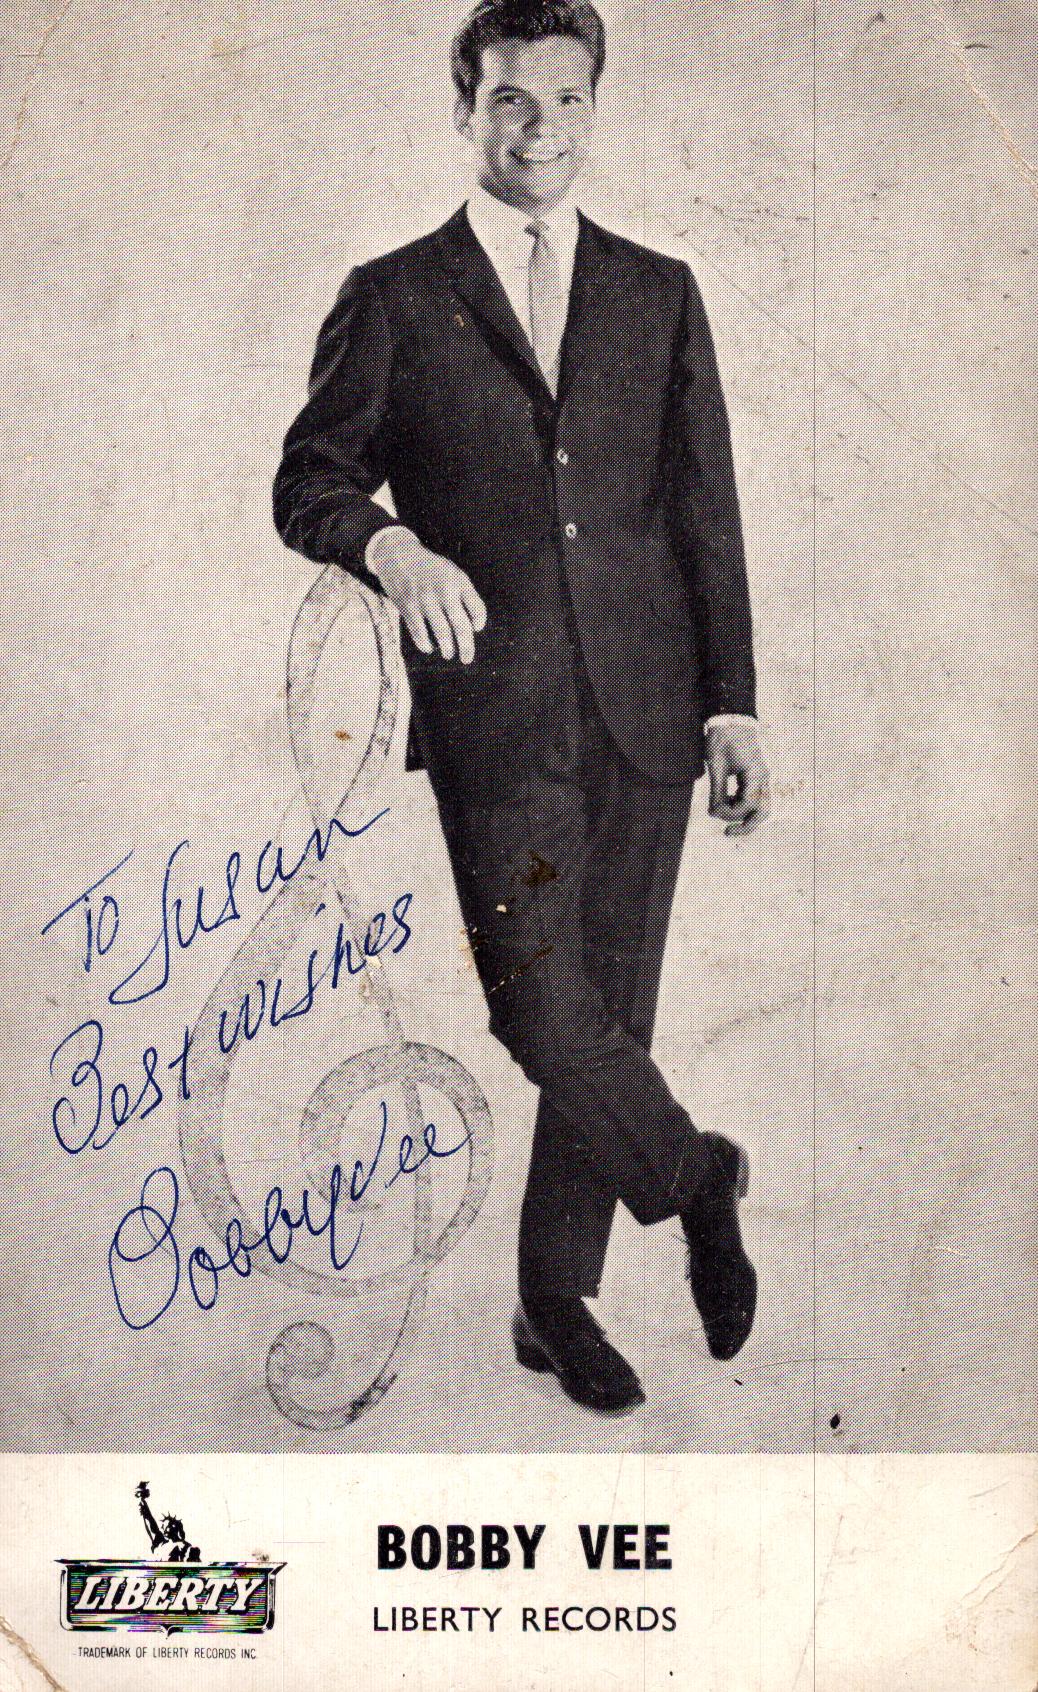 To Susan
Best wishes
Bobby Vee
BOBBY VEE
LIBERTY RECORDS
LIBERTY
TRADEMARK OF LIBERTY RECORDS INC.